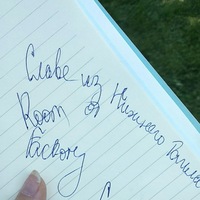 Славе из Нижнего Тагила
Room of
Factory